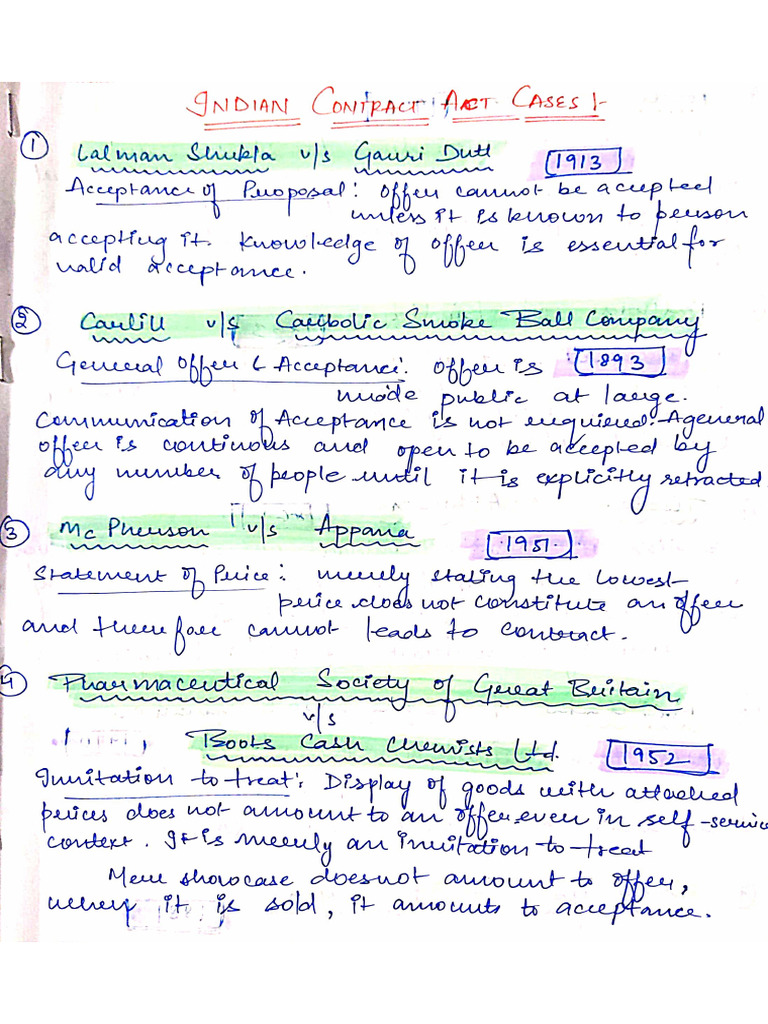 INDIAN CONTRACT ACT CASES :-
① Lalman Shukla v/s Gauri Dutt 1913
Acceptance of Proposal : Offer cannot be accepted
unless it is known to person
accepting it. Knowledge of offer is essential for
valid acceptance.
② Carlill v/s Carbolic Smoke Ball Company
General Offer & Acceptance : Offer is 1893
made public at large.
Communication of Acceptance is not required. A general
offer is continous and open to be accepted by
any number of people until it is explicitly retracted
③ Mc Pherson v/s Appana 1951
Statement of Price : merely stating the lowest
price does not constitute an offer
and therefore cannot leads to contract.
4 Pharmaceutical Society of Great Britain
v/s
Boots Cash Chemists Ltd. 1952
Invitation to treat : Display of goods with attached
prices does not amount to an offer, even in self-service
context. It is merely an invitation to treat
Mere showcase does not amount to offer,
when it is sold, it amounts to acceptance.